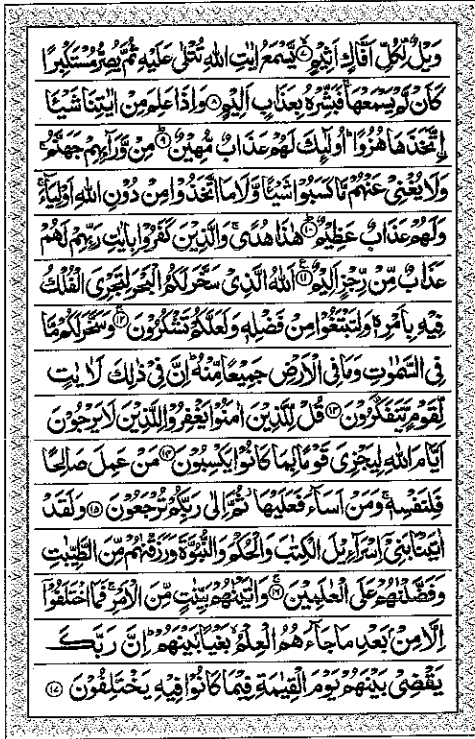 وَيْلٌ لِّكُلِّ اَفَّاكٍ اَثِيْمٍ ۙ۷ يَّسْمَعُ اٰيٰتِ اللّٰهِ تُتْلٰى عَلَيْهِ ثُمَّ يُصِرُّ مُسْتَكْبِرًا
كَاَنْ لَّمْ يَسْمَعْهَا ۚ فَبَشِّرْهُ بِعَذَابٍ اَلِيْمٍ ۸ وَاِذَا عَلِمَ مِنْ اٰيٰتِنَا شَيْـًٔا
اِتَّخَذَهَا هُزُوًا ؕ اُولٰٓئِكَ لَهُمْ عَذَابٌ مُّهِيْنٌ ؕ۹ مِنْ وَّرَآئِهِمْ جَهَنَّمُ ۚ
وَلَا يُغْنِيْ عَنْهُمْ مَّا كَسَبُوْا شَيْـًٔا وَّلَا مَا اتَّخَذُوْا مِنْ دُوْنِ اللّٰهِ اَوْلِيَآءَ ۚ
وَلَهُمْ عَذَابٌ عَظِيْمٌ ؕ۱۰ هٰذَا هُدًى ۚ وَالَّذِيْنَ كَفَرُوْا بِاٰيٰتِ رَبِّهِمْ لَهُمْ
عَذَابٌ مِّنْ رِّجْزٍ اَلِيْمٌ ۱۱ اَللّٰهُ الَّذِيْ سَخَّرَ لَكُمُ الْبَحْرَ لِتَجْرِيَ الْفُلْكُ
فِيْهِ بِاَمْرِهٖ وَلِتَبْتَغُوْا مِنْ فَضْلِهٖ وَلَعَلَّكُمْ تَشْكُرُوْنَ ۚ۱۲ وَسَخَّرَ لَكُمْ مَّا
فِي السَّمٰوٰتِ وَمَا فِي الْاَرْضِ جَمِيْعًا مِّنْهُ ؕ اِنَّ فِيْ ذٰلِكَ لَاٰيٰتٍ
لِّقَوْمٍ يَّتَفَكَّرُوْنَ ۱۳ قُلْ لِّلَّذِيْنَ اٰمَنُوْا يَغْفِرُوْا لِلَّذِيْنَ لَا يَرْجُوْنَ
اَيَّامَ اللّٰهِ لِيَجْزِيَ قَوْمًۢا بِمَا كَانُوْا يَكْسِبُوْنَ ۱۴ مَنْ عَمِلَ صَالِحًا
فَلِنَفْسِهٖ ۚ وَمَنْ اَسَآءَ فَعَلَيْهَا ؗ ثُمَّ اِلٰى رَبِّكُمْ تُرْجَعُوْنَ ۱۵ وَلَقَدْ
اٰتَيْنَا بَنِيْۤ اِسْرَآءِيْلَ الْكِتٰبَ وَالْحُكْمَ وَالنُّبُوَّةَ وَرَزَقْنٰهُمْ مِّنَ الطَّيِّبٰتِ
وَفَضَّلْنٰهُمْ عَلَى الْعٰلَمِيْنَ ۚ۱۶ وَاٰتَيْنٰهُمْ بَيِّنٰتٍ مِّنَ الْاَمْرِ ۚ فَمَا اخْتَلَفُوْۤا
اِلَّا مِنْۢ بَعْدِ مَا جَآءَهُمُ الْعِلْمُ ۙ بَغْيًۢا بَيْنَهُمْ ؕ اِنَّ رَبَّكَ
يَقْضِيْ بَيْنَهُمْ يَوْمَ الْقِيٰمَةِ فِيْمَا كَانُوْا فِيْهِ يَخْتَلِفُوْنَ ۱۷